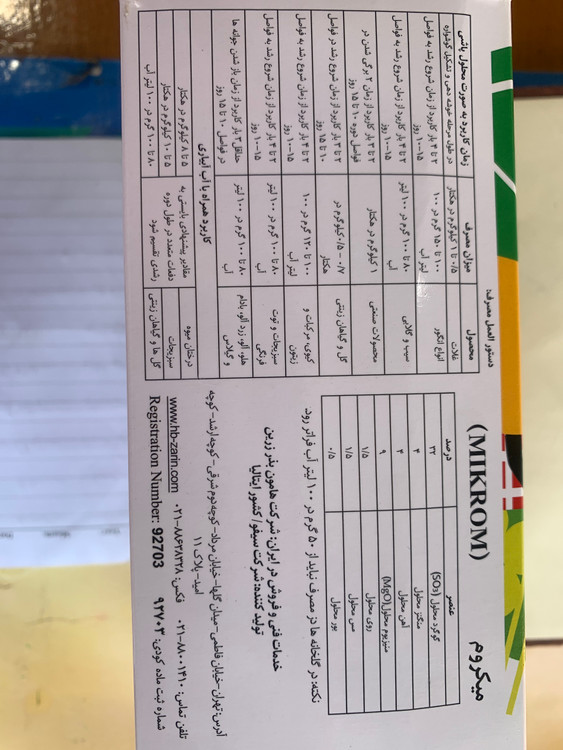 میکروم (MIKROM)
عنصر درصد
گوگرد محلول (SO3) ۳۲
منگنز محلول ۴
آهن محلول ۴
منیزیوم محلول(MgO) ۹
روی محلول ۱/۵
مس محلول ۱/۵
بور محلول ۰/۵
نکته: در گلخانه ها دز مصرف نباید از ۵۰ گرم در ۱۰۰ لیتر آب فراتر رود.
خدمات فنی و فروش در ایران: شرکت هامون بذر زرین
تولید کننده: شرکت سیفو/ کشور ایتالیا
آدرس: تهران-خیابان فاطمی-میدان گلها-خیابان مرداد-کوچه دوم شرقی-کوچه ارشد-کوچه
امید-پلاک ۱۱
تلفن تماس: ۸۸۰۰۱۴۱۰-۰۲۱ فکس: ۸۸۶۲۸۳۲۸-۰۲۱
www.hb-zarin.com
شماره ثبت ماده کودی: ۹۲۷۰۳ Registration Number: 92703
دستور العمل مصرف:
محصول میزان مصرف زمان کاربرد به صورت محلول پاشی
غلات ۰/۵ تا ۱ کیلوگرم در هکتار در طول مرحله خوشه دهی و تشکیل گوشواره
انواع انگور ۱۰۰ تا ۱۵۰ گرم در ۱۰۰ لیتر آب ۲ تا ۴ بار کاربرد از زمان شروع رشد به فواصل ۱۵-۱۰ روز
سیب و گلابی ۸۰ تا ۱۰۰ گرم در ۱۰۰ لیتر آب ۲ تا ۴ بار کاربرد از زمان شروع رشد به فواصل ۱۵-۱۰ روز
محصولات صنعتی ۱ کیلوگرم در هکتار ۲ تا ۳ بار کاربرد از زمان ۲ برگی شدن در فواصل دوره ۱۰ تا ۱۵ روز
گل و گیاهان زینتی ۰/۷ – ۰/۵ کیلوگرم در هکتار ۲ تا ۳ بار کاربرد از زمان شروع رشد در فواصل ۱۰ تا ۱۵ روز
کیوی، مرکبات و زیتون ۱۰۰ تا ۱۳۰ گرم در ۱۰۰ لیتر آب ۲ تا ۴ بار کاربرد از زمان شروع رشد به فواصل ۱۵-۱۰ روز
سبزیجات و توت فرنگی ۸۰ تا ۱۰۰ گرم در ۱۰۰ لیتر آب ۲ تا ۴ بار کاربرد از زمان شروع رشد به فواصل ۱۵-۱۰ روز
هلو، آلو، زرد آلو، بادام و گیلاس ۸۰ تا ۱۰۰ گرم در ۱۰۰ لیتر آب حداقل ۲ بار کاربرد از زمان باز شدن جوانه ها در فواصل ۱۰ تا ۱۵ روز
کاربرد همراه با آب آبیاری
درختان میوه مقادیر پیشنهادی بایستی به ۵ تا ۸ کیلوگرم در هکتار
سبزیجات دفعات متعدد در طول دوره ۵ تا ۱۰ کیلوگرم در هکتار
گل ها و گیاهان زینتی رشدی تقسیم شود ۸۰ تا ۱۰۰ گرم در ۱۰۰ لیتر آب